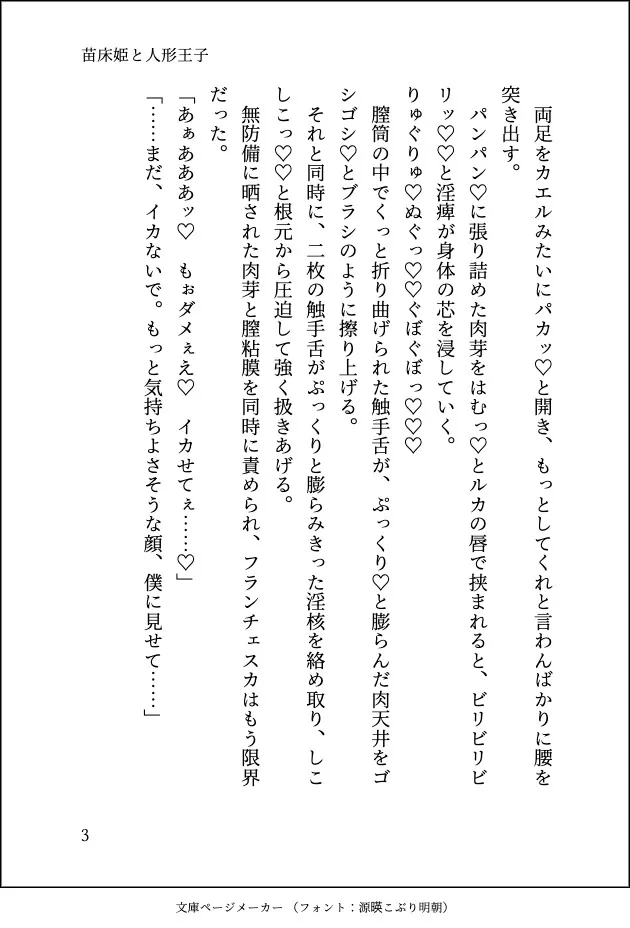 苗床姫と人形王子
　両足をカエルみたいにパカッ♡と開き、もっとしてくれと言わんばかりに腰を
突き出す。
　パンパン♡に張り詰めた肉芽をはむっ♡とルカの唇で挟まれると、ビリビリビ
リッ♡♡と淫痺が身体の芯を浸していく。
りゅぐりゅ♡ぬぐっ♡♡ぐぼぐぼっ♡♡♡
　膣筒の中でくっと折り曲げられた触手舌が、ぷっくり♡と膨らんだ肉天井をゴ
シゴシ♡とブラシのように擦り上げる。
　それと同時に、二枚の触手舌がぷっくりと膨らみきった淫核を絡め取り、しこ
しこっ♡♡と根元から圧迫して強く扱きあげる。
　無防備に晒された肉芽と膣粘膜を同時に責められ、フランチェスカはもう限界
だった。
「あぁあああッ♡　もぉダメぇえ♡　イカせてぇ……♡」
「……まだ、イカないで。もっと気持ちよさそうな顔、僕に見せて……」
3
文庫ページメーカー（フォント：源暎こぶり明朝）